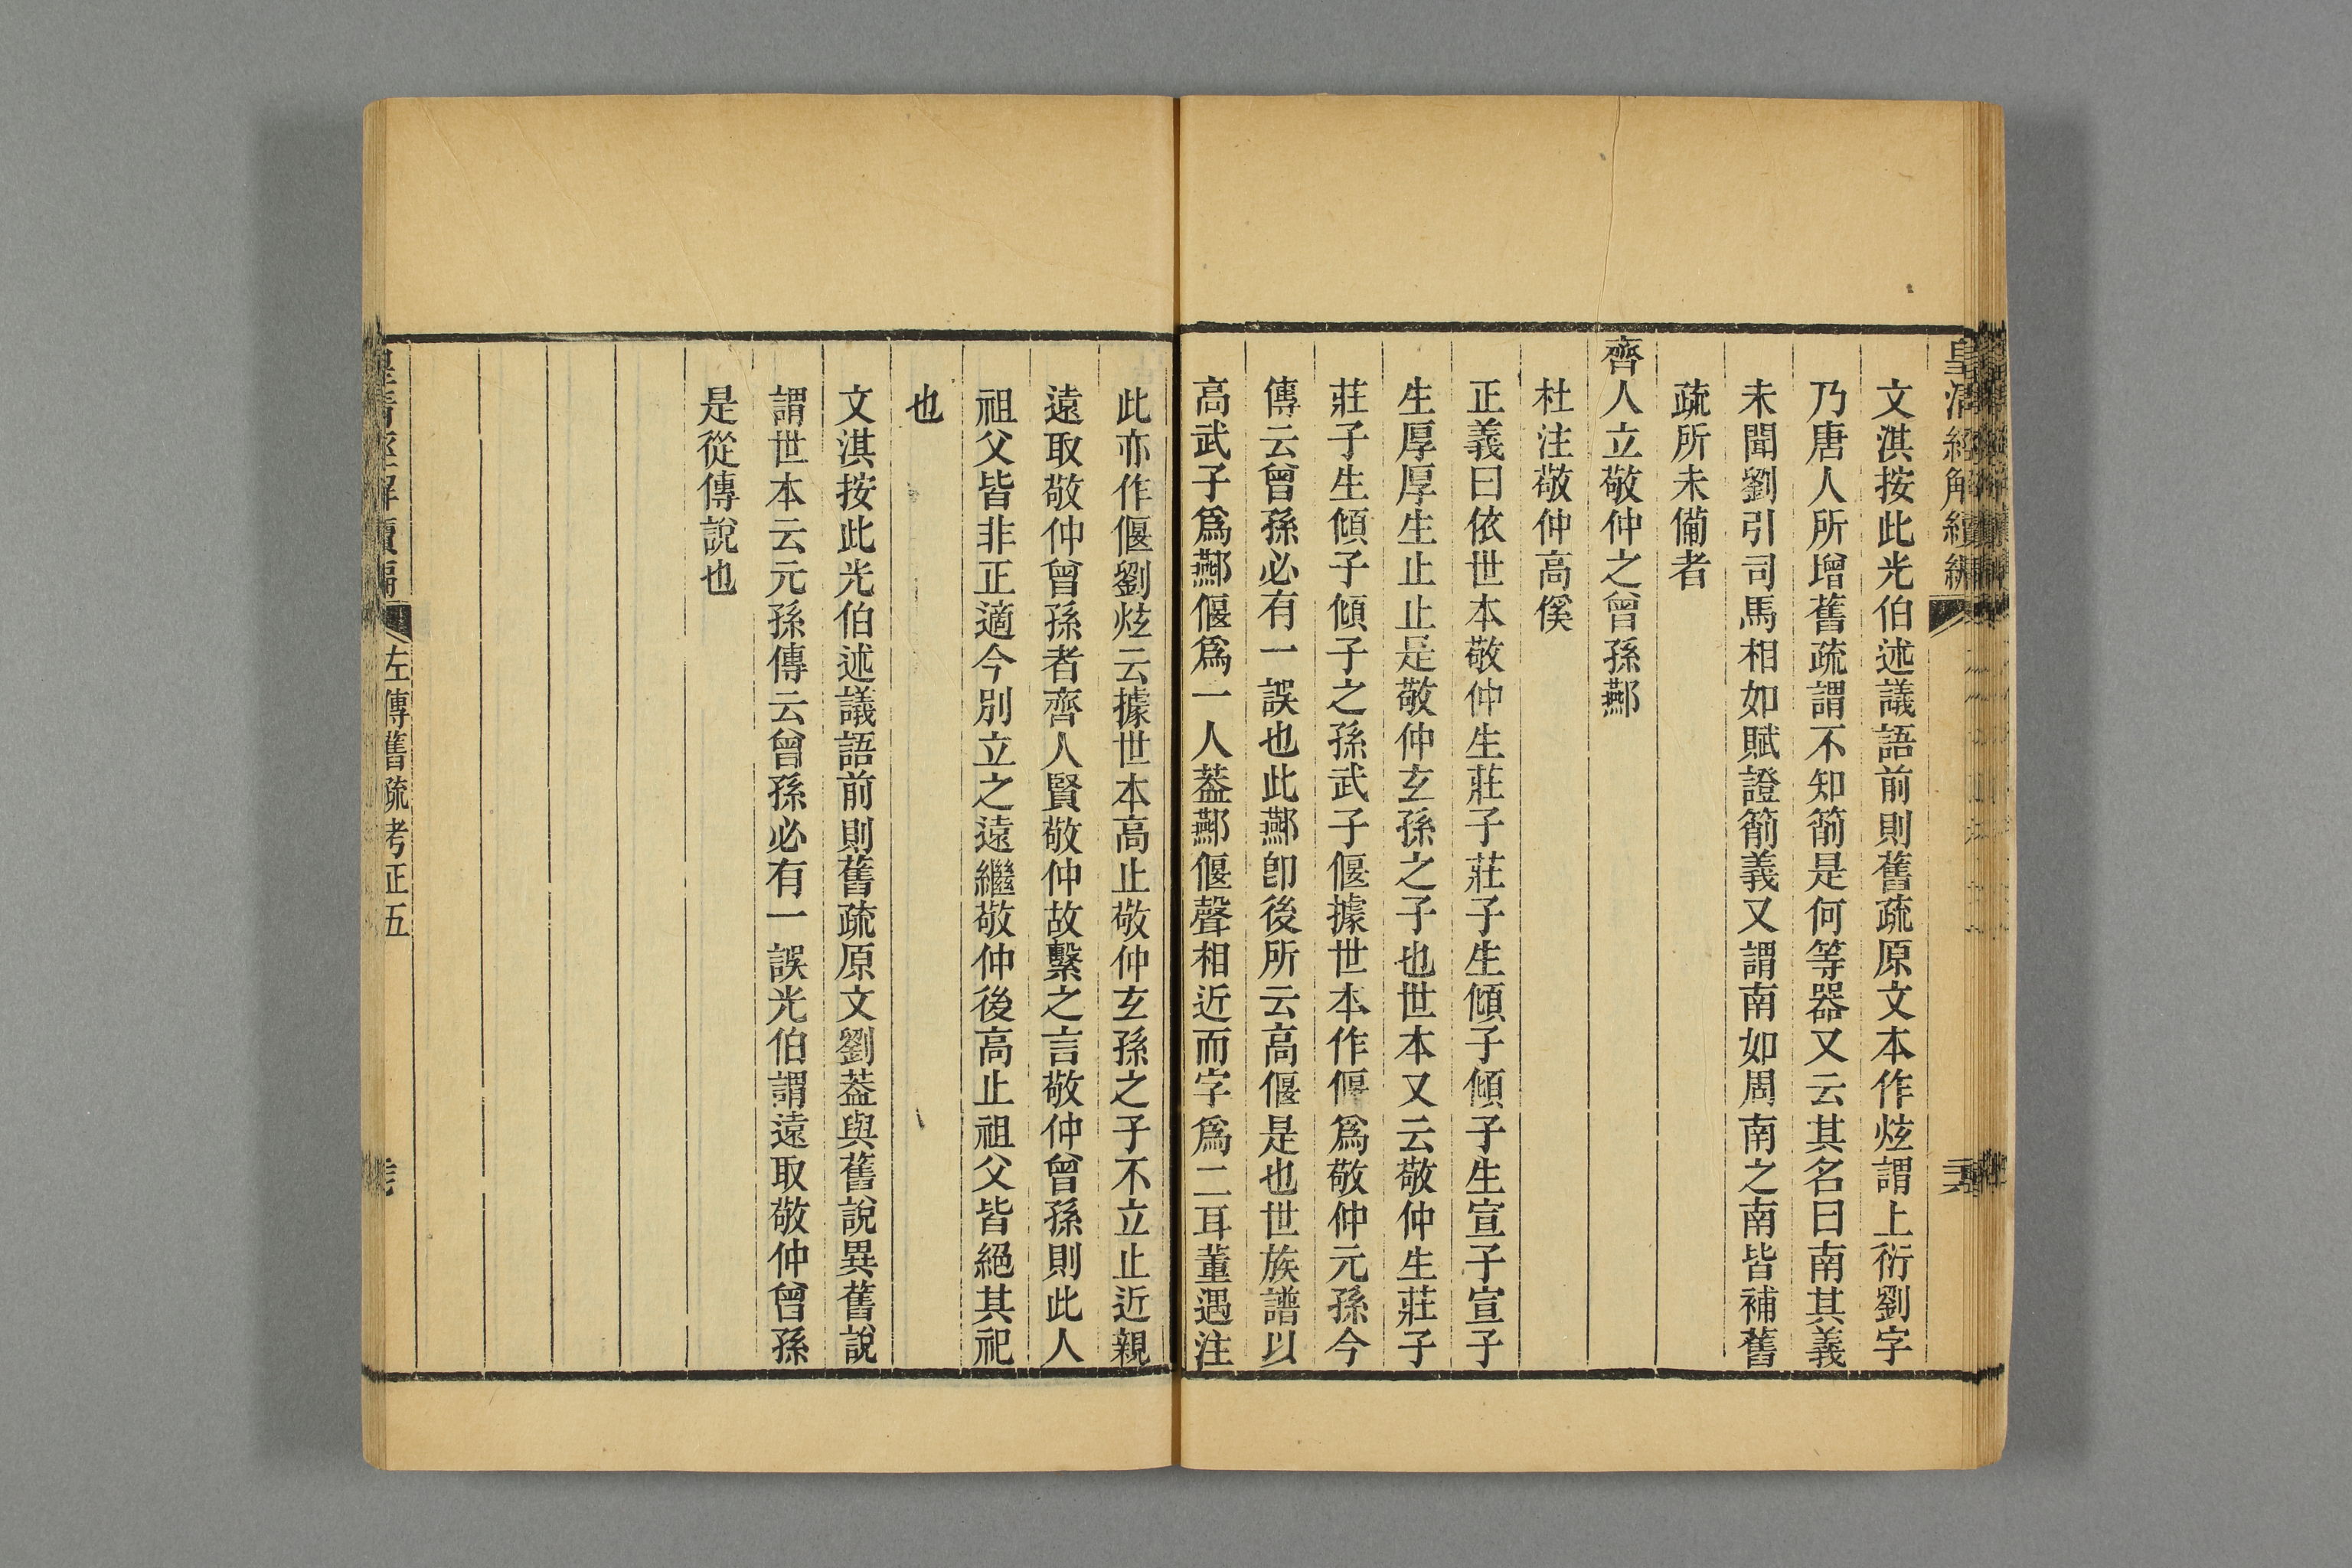 皇清經解續編
文淇按此光伯述議語前則舊疏原文本作炫謂上衍劉字
乃唐人所增舊疏謂不知箾是何等器又云其名曰南其義
未聞劉引司馬相如賦證箾義又謂南如周南之南皆補舊
疏所未備者
齊人立敬仲之曾孫酀
杜注敬仲高傒
正義曰依世本敬仲生莊子莊子生傾子傾子生宣子宣子
生厚厚生止止是敬仲玄孫之子也世本又云敬仲生莊子
莊子生傾子傾子之孫武子偃據世本作偃爲敬仲元孫今
傳云曾孫必有一誤也此酀卽後所云高偃是也世族譜以
高武子爲酀偃爲一人葢酀偃聲相近而字爲二耳董遇注
此亦作偃劉炫云據世本高止敬仲玄孫之子不立止近親
遠取敬仲曾孫者齊人賢敬仲故繫之言敬仲曾孫則此人
祖父皆非正適今別立之遠繼敬仲後高止祖父皆絕其祀
也
文淇按此光伯述議語前則舊疏原文劉葢與舊說異舊說
謂世本云元孫傳云曾孫必有一誤光伯謂遠取敬仲曾孫
是從傳說也
皇清經解續編 左傳舊疏考正五